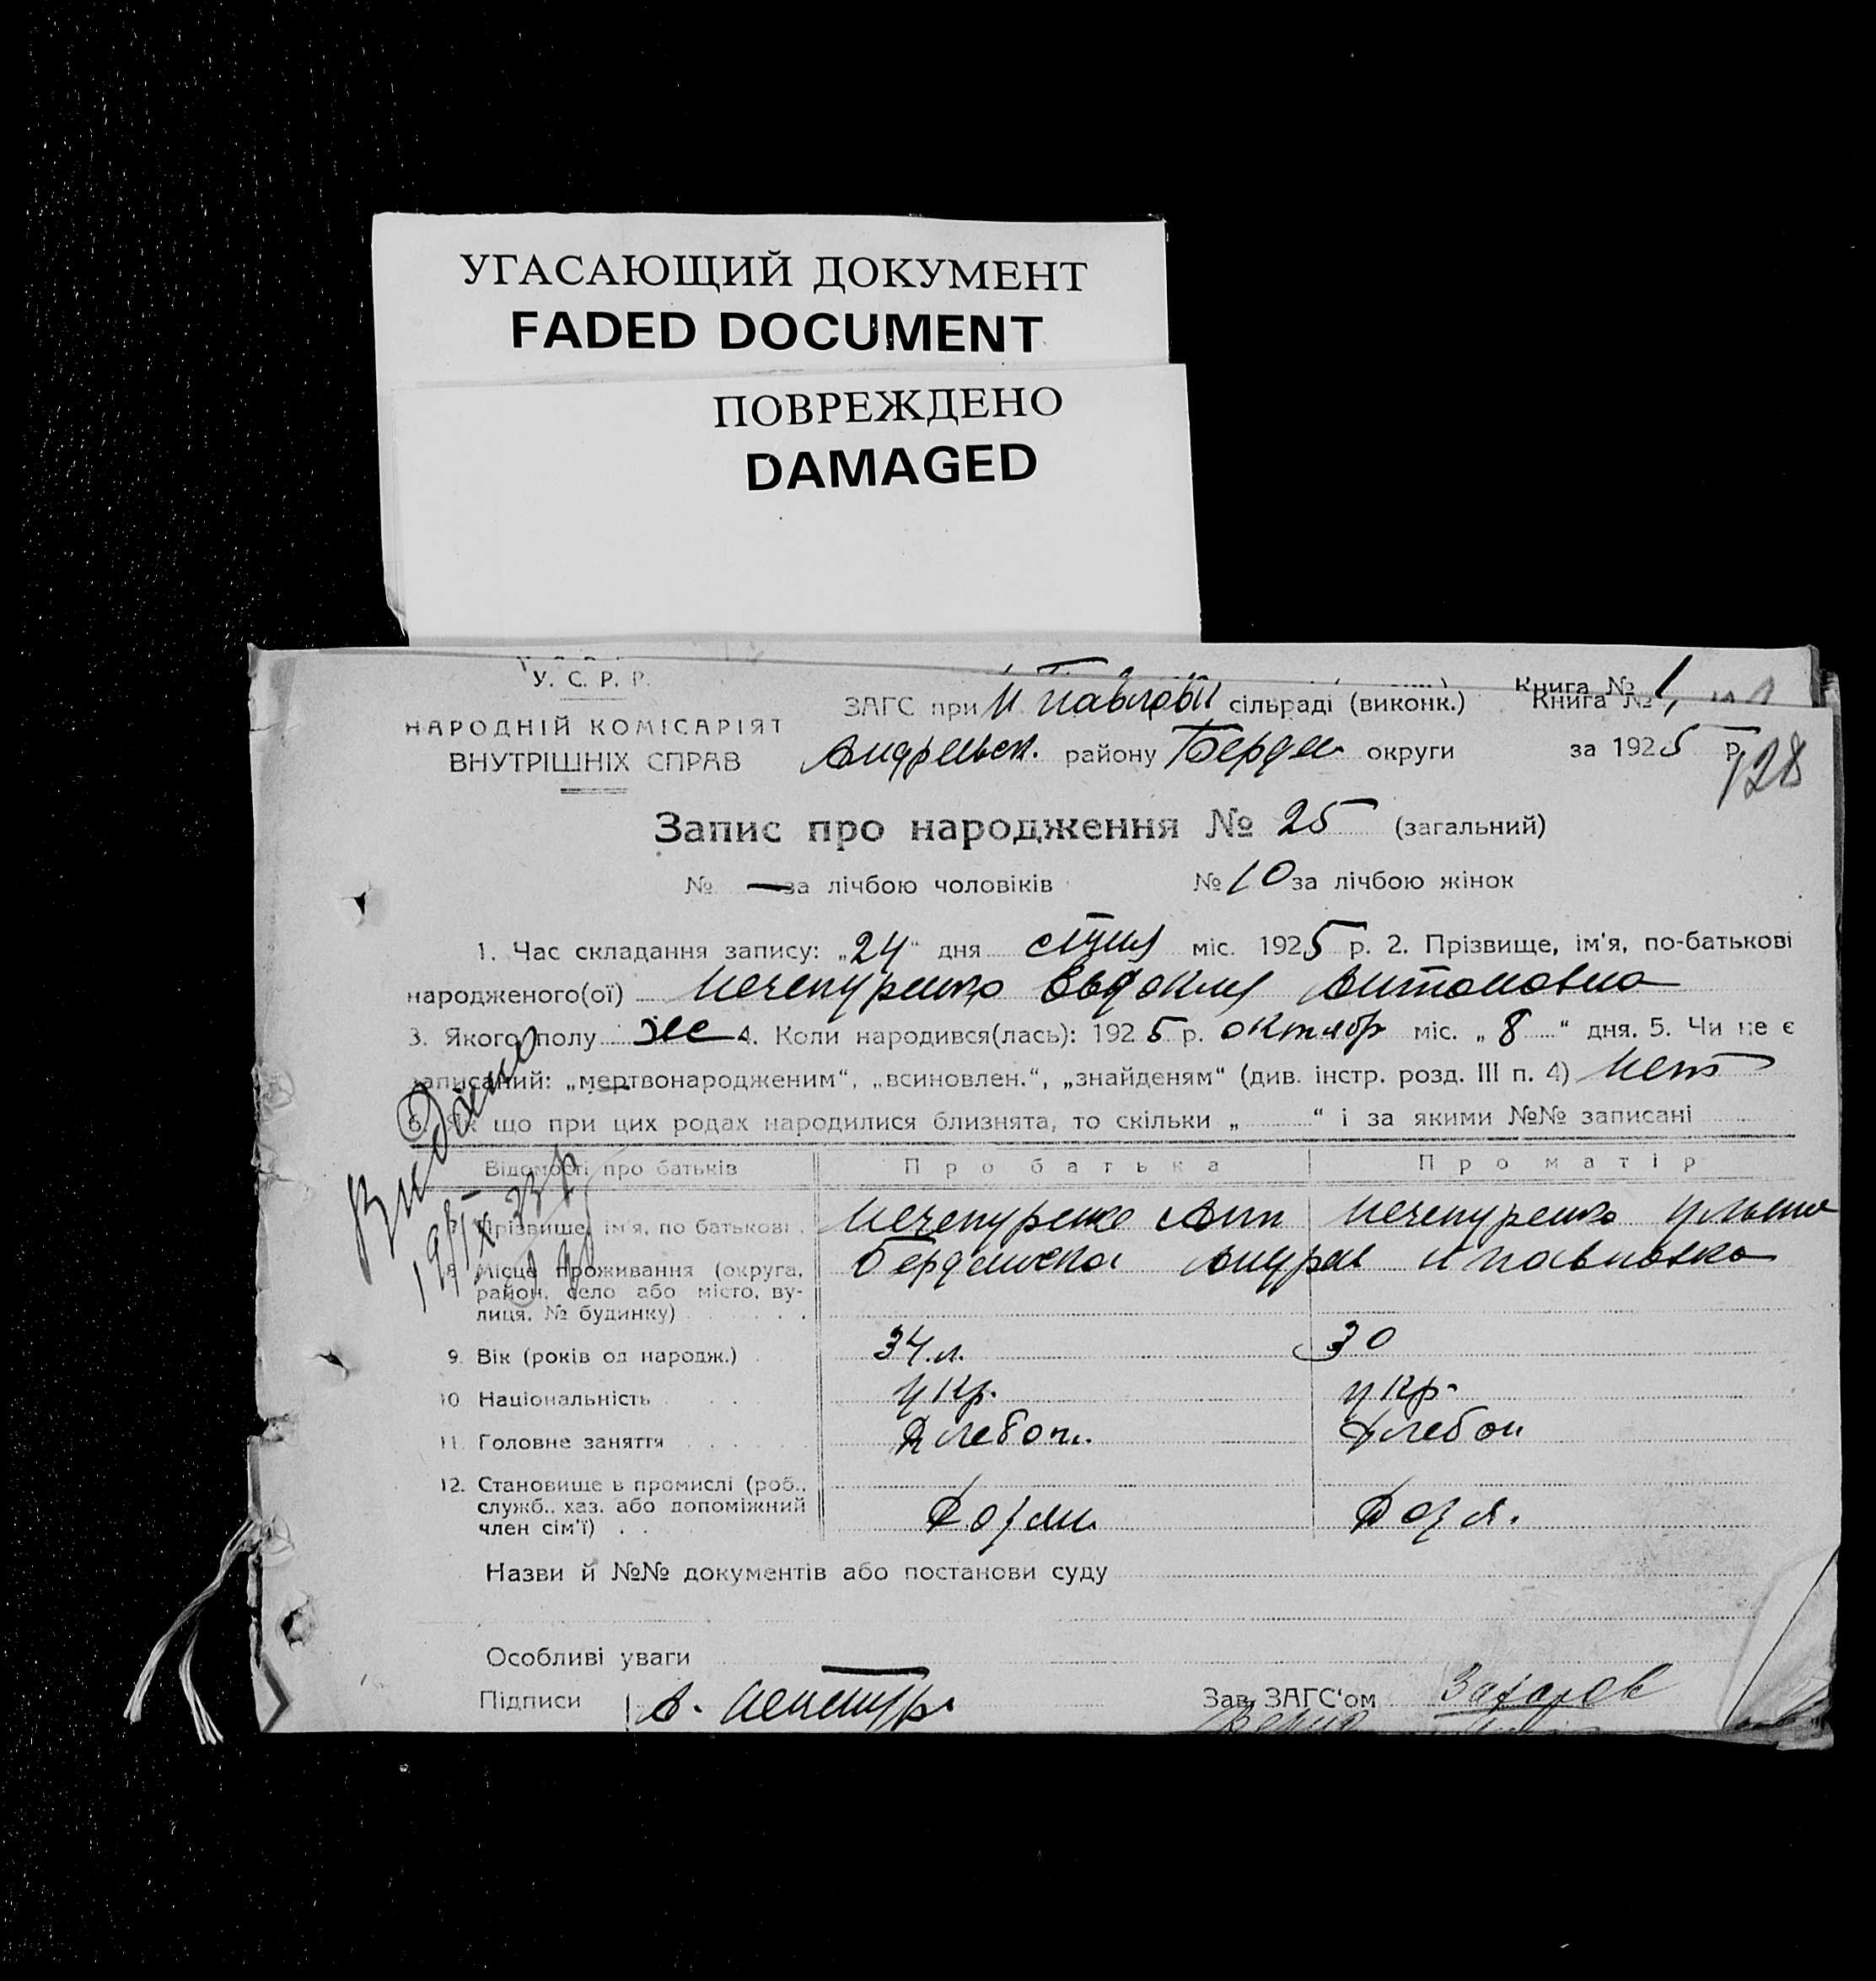 УГАСАЮЩИЙ ДОКУМЕНТ
FADED DOCUMENT
ПОВРЕЖДЕНО
DAMAGED
У. С. Р. Р.
НАРОДНІЙ КОМІСАРІЯТ
ВНУТРІШНІХ СПРАВ
Книга № 1
ЗАГС при Н павлов сільраді (виконк.) Книга №
Андреевск. району Бердян округи за 1925 р.
128
Запис про народження № 25 (загальний)
№ — за лічбою чоловіків № 10 за лічбою жінок
1. Час складання запису: „24“ дня міс. 1925 р. 2. Прізвище, ім'я, по-батькові
народженого(ої) Нечепуренко Евдокия Антоновна
3. Якого полу же 4. Коли народився(лась): 1925 р. октябр міс. „8“ дня. 5. Чи не є
записаний: „мертвонародженим“, „всиновлен.“, „знайденям“ (див. інстр. розд. III п. 4) нет
6. Як що при цих родах народилися близнята, то скільки „ “ і за якими №№ записані
Видано
19/IX 33 р
Відомості про батьків Про батька Про матір
7. Прізвище, ім'я, по батькові Нечепуренко Ант Нечепуренко Ульяна
8. Місце проживання (округа, Бердянска Андрев Н павловка
район, село або місто, ву-
лиця, № будинку)
9. Вік (років од народж.) 34 л. 30
10. Національність укр. укр.
11. Головне заняття Хлебоп. Хлебоп
12. Становище в промислі (роб.,
служб., хаз. або допоміжний Хозяин Хозя.
член сім'ї)
Назви й №№ документів або постанови суду
Особливі уваги
Підписи А. Зав. ЗАГС'ом Захаров